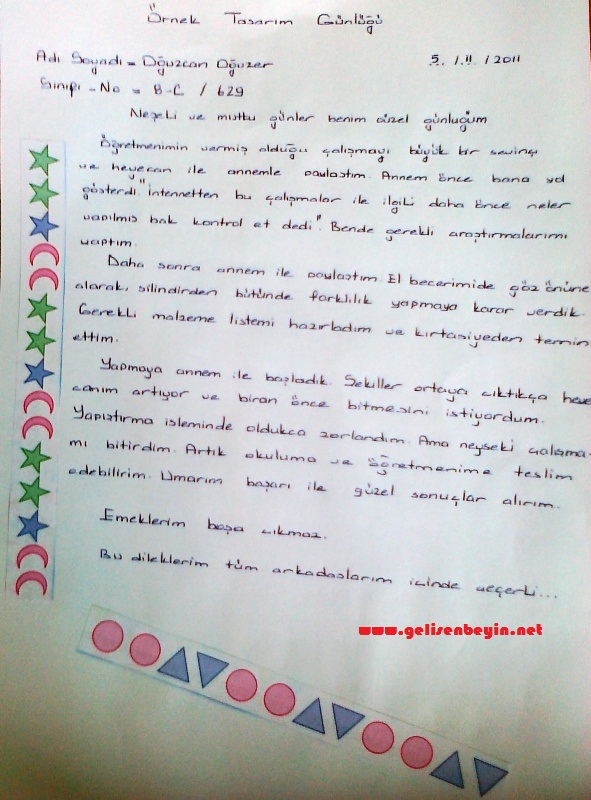 Örnek Tasarım Günlüğü
Adı Soyadı = Oğuzcan Oğuzer 5 / 11 / 2011
Sınıfı - No = 8-C / 629
Neşeli ve mutlu günler benim güzel günlüğüm
Öğretmenimin vermiş olduğu çalışmayı büyük bir sevinç
ve heyecan ile annemle paylaştım. Annem önce bana yol
gösterdi "internetten bu çalışmalar ile ilgili daha önce neler
yapılmış bak kontrol et dedi". Bende gerekli araştırmalarımı
yaptım.
Daha sonra annem ile paylaştım. El becerimide göz önüne
alarak, silindirden bütünde farklılık yapmaya karar verdik.
Gerekli malzeme listemi hazırladım ve kırtasiyeden temin
ettim.
Yapmaya annem ile başladık. Şekiller ortaya çıktıkça heye
canım artıyor ve biran önce bitmesini istiyordum.
Yapıştırma isleminde oldukca zorlandım. Ama neyseki çalışma-
mı bitirdim. Artık okuluma ve öğretmenime teslim
edebilirim. Umarım başarı ile güzel sonuçlar alırım.
Emeklerim boşa çıkmaz.
Bu dileklerim tüm arkadaşlarım içinde geçerli...
www.gelisenbeyin.net